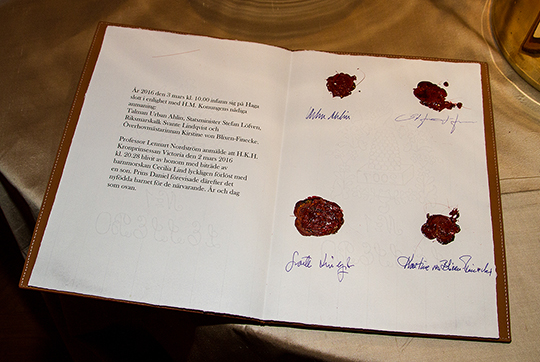 År 2016 den 3 mars kl. 10.00 infann sig på Haga
slott i enlighet med H.M. Konungens nådiga
anmaning:
Talman Urban Ahlin, Statsminister Stefan Löfven,
Riksmarskalk Svante Lindqvist och
Överhovmästarinnan Kirstine von Blixen-Finecke.
Professor Lennart Nordström anmälde att H.K.H.
Kronprinsessan Victoria den 2 mars 2016
kl. 20.28 blivit av honom med biträde av
barnmorskan Cecilia Lind lyckligen förlöst med
en son. Prins Daniel förevisade därefter det
nyfödda barnet för de närvarande. År och dag
som ovan.
Urban Ahlin
Svante Lindqvist
Kirstine von Blixen-Finecke